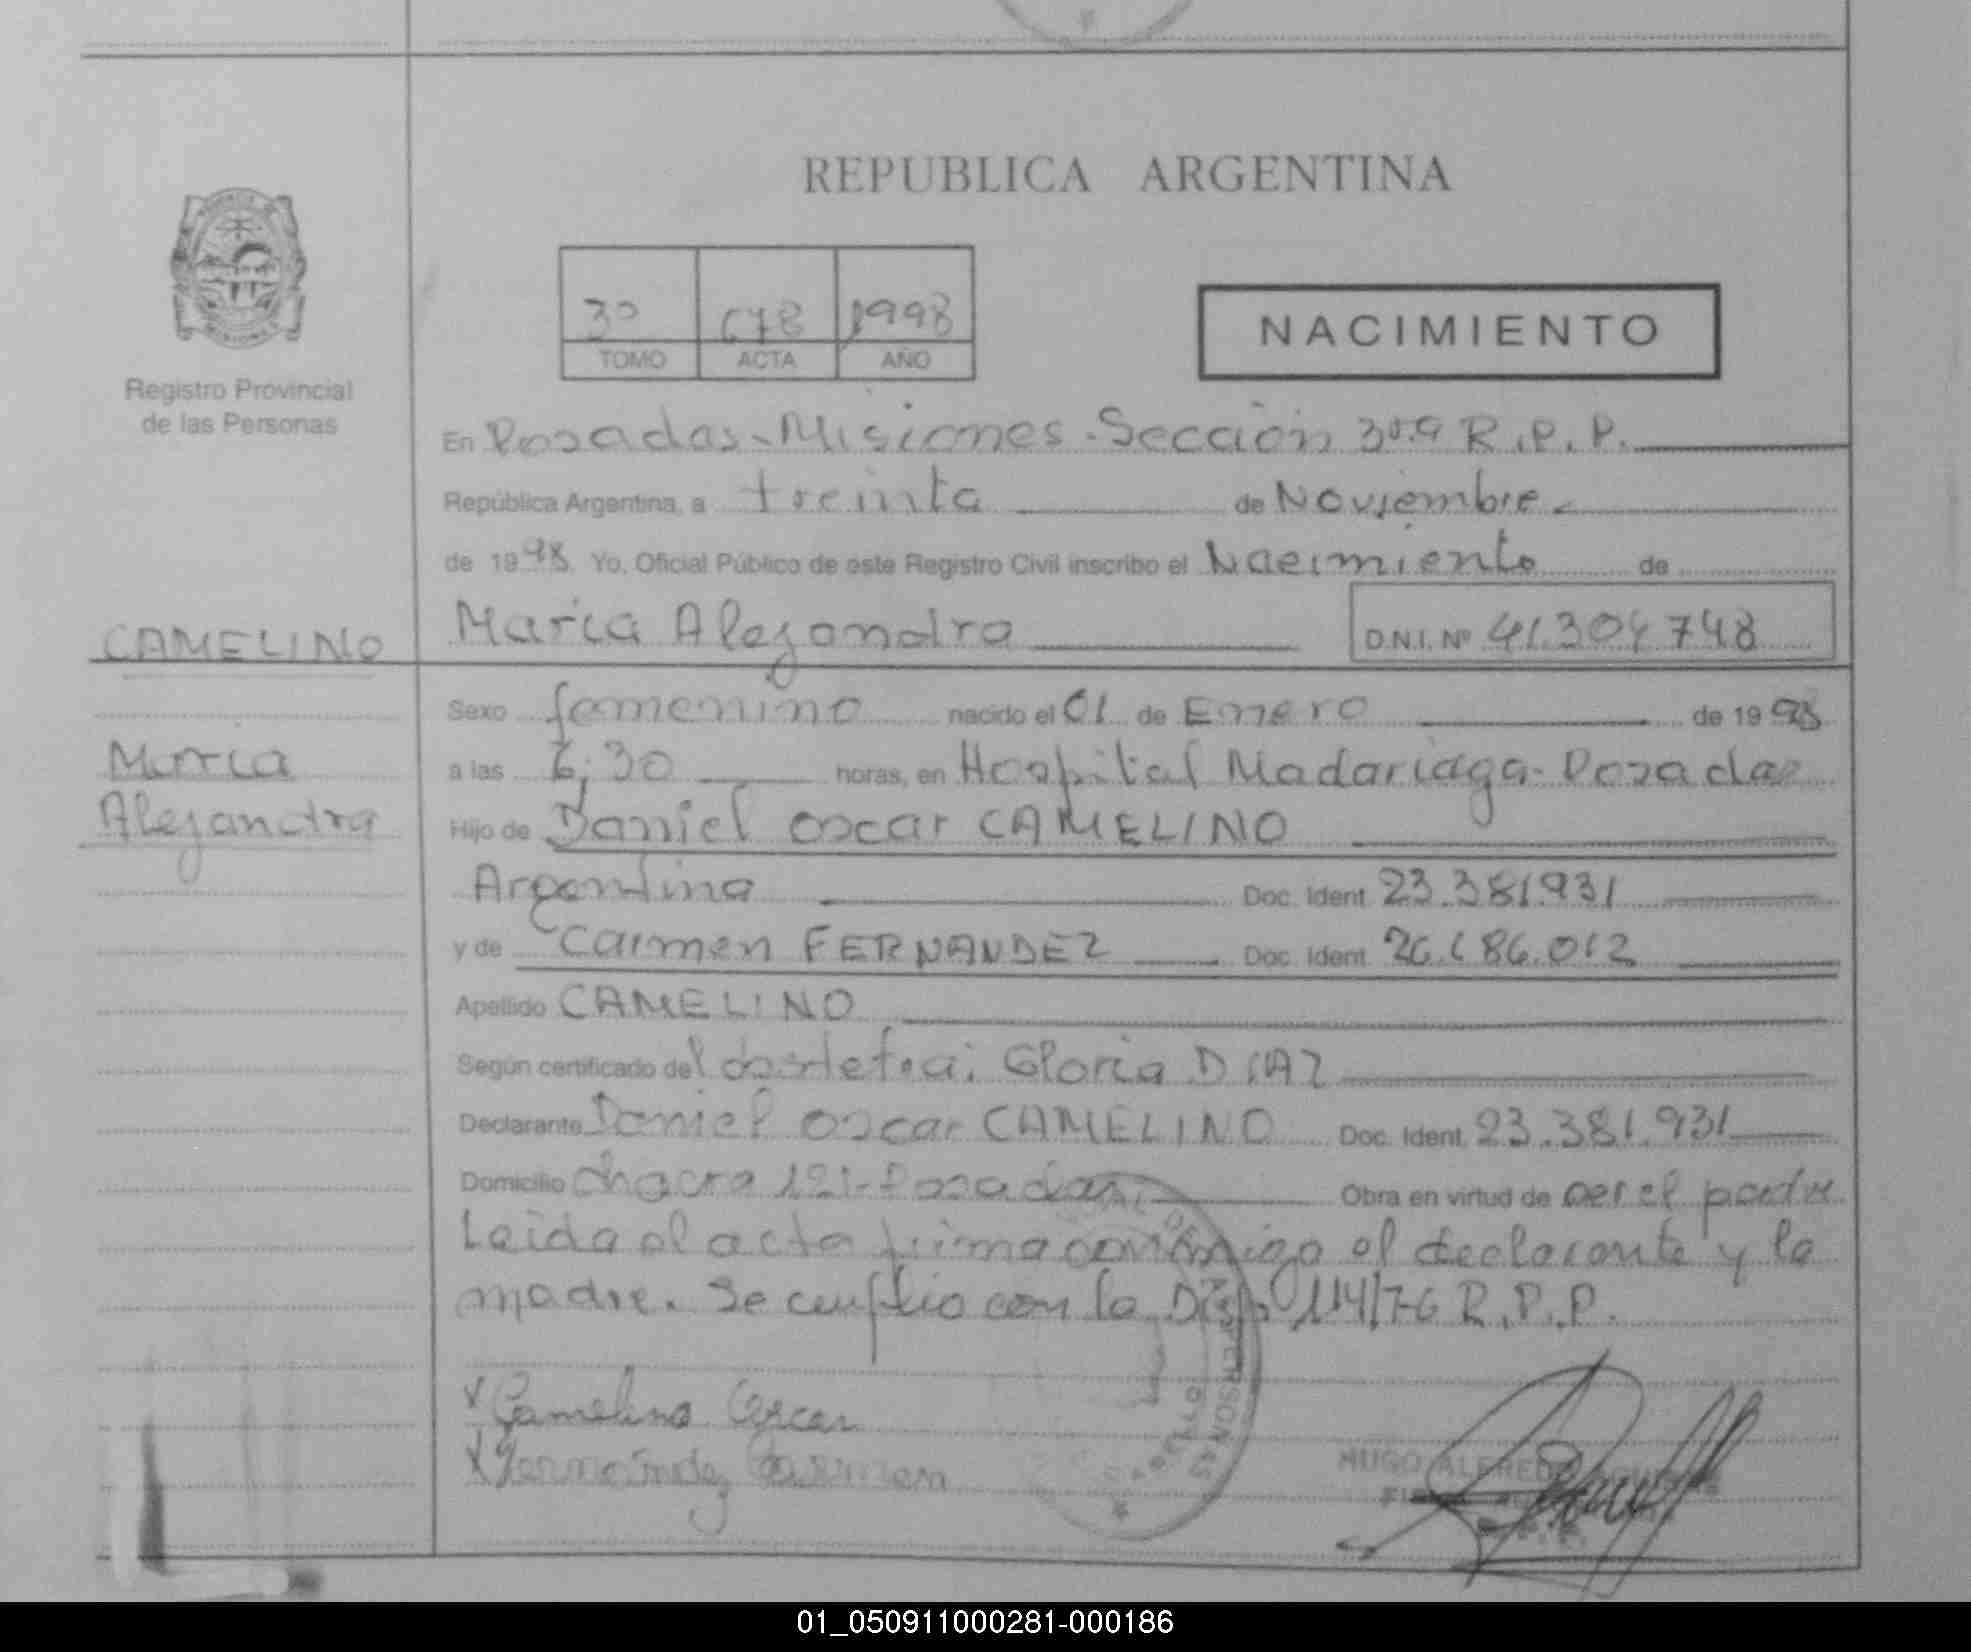 REPUBLICA ARGENTINA
3º 678 1998
TOMO ACTA AÑO
NACIMIENTO
Registro Provincial
de las Personas
En Posadas - Misiones - Sección 3º R.P.P.
República Argentina, a treinta de Noviembre
de 1998 Yo, Oficial Público de este Registro Civil inscribo el Nacimiento de
CAMELINO
María Alejandra D.N.I. Nº 41.304.748
Sexo femenino nacido el 01 de Enero de 1998
Maria
Alejandra
a las 6,30 horas, en Hospital Madariaga - Posadas
Hijo de Daniel Oscar CAMELINO
Argentina Doc. Ident. 23.381.931
y de Carmen FERNANDEZ Doc. Ident.
Apellido CAMELINO
Según certificado del obstetra: Gloria DIAZ
Declarante Daniel Oscar CAMELINO Doc. Ident. 23.381.931
Domicilio chacra 121 - Posadas Obra en virtud de ser el padre
Leida el acta firma conmigo el declarante y la
madre. Se cumplio con la Disp. 114/76 R.P.P.
Camelino Oscar
Fernández Carmen
HUGO ALFREDO
01_050911000281-000186